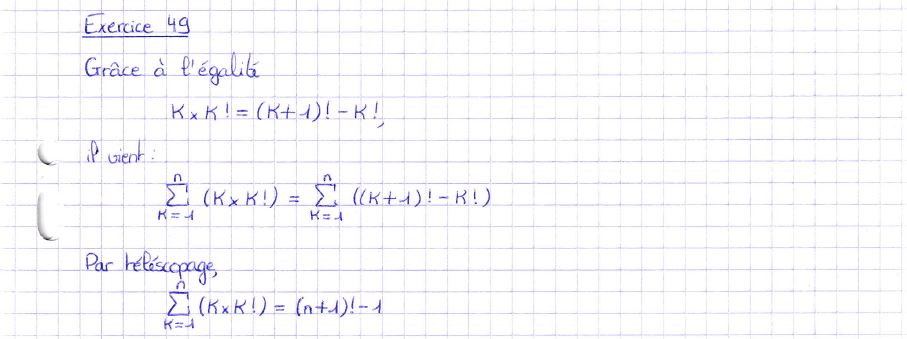 Exercice 49
Grâce à l'égalité
K × K! = (K+1)! - K!,
il vient :
n n
∑ (K × K!) = ∑ ((K+1)! - K!)
K=1 K=1
Par téléscopage,
n
∑ (K×K!) = (n+1)! - 1
K=1